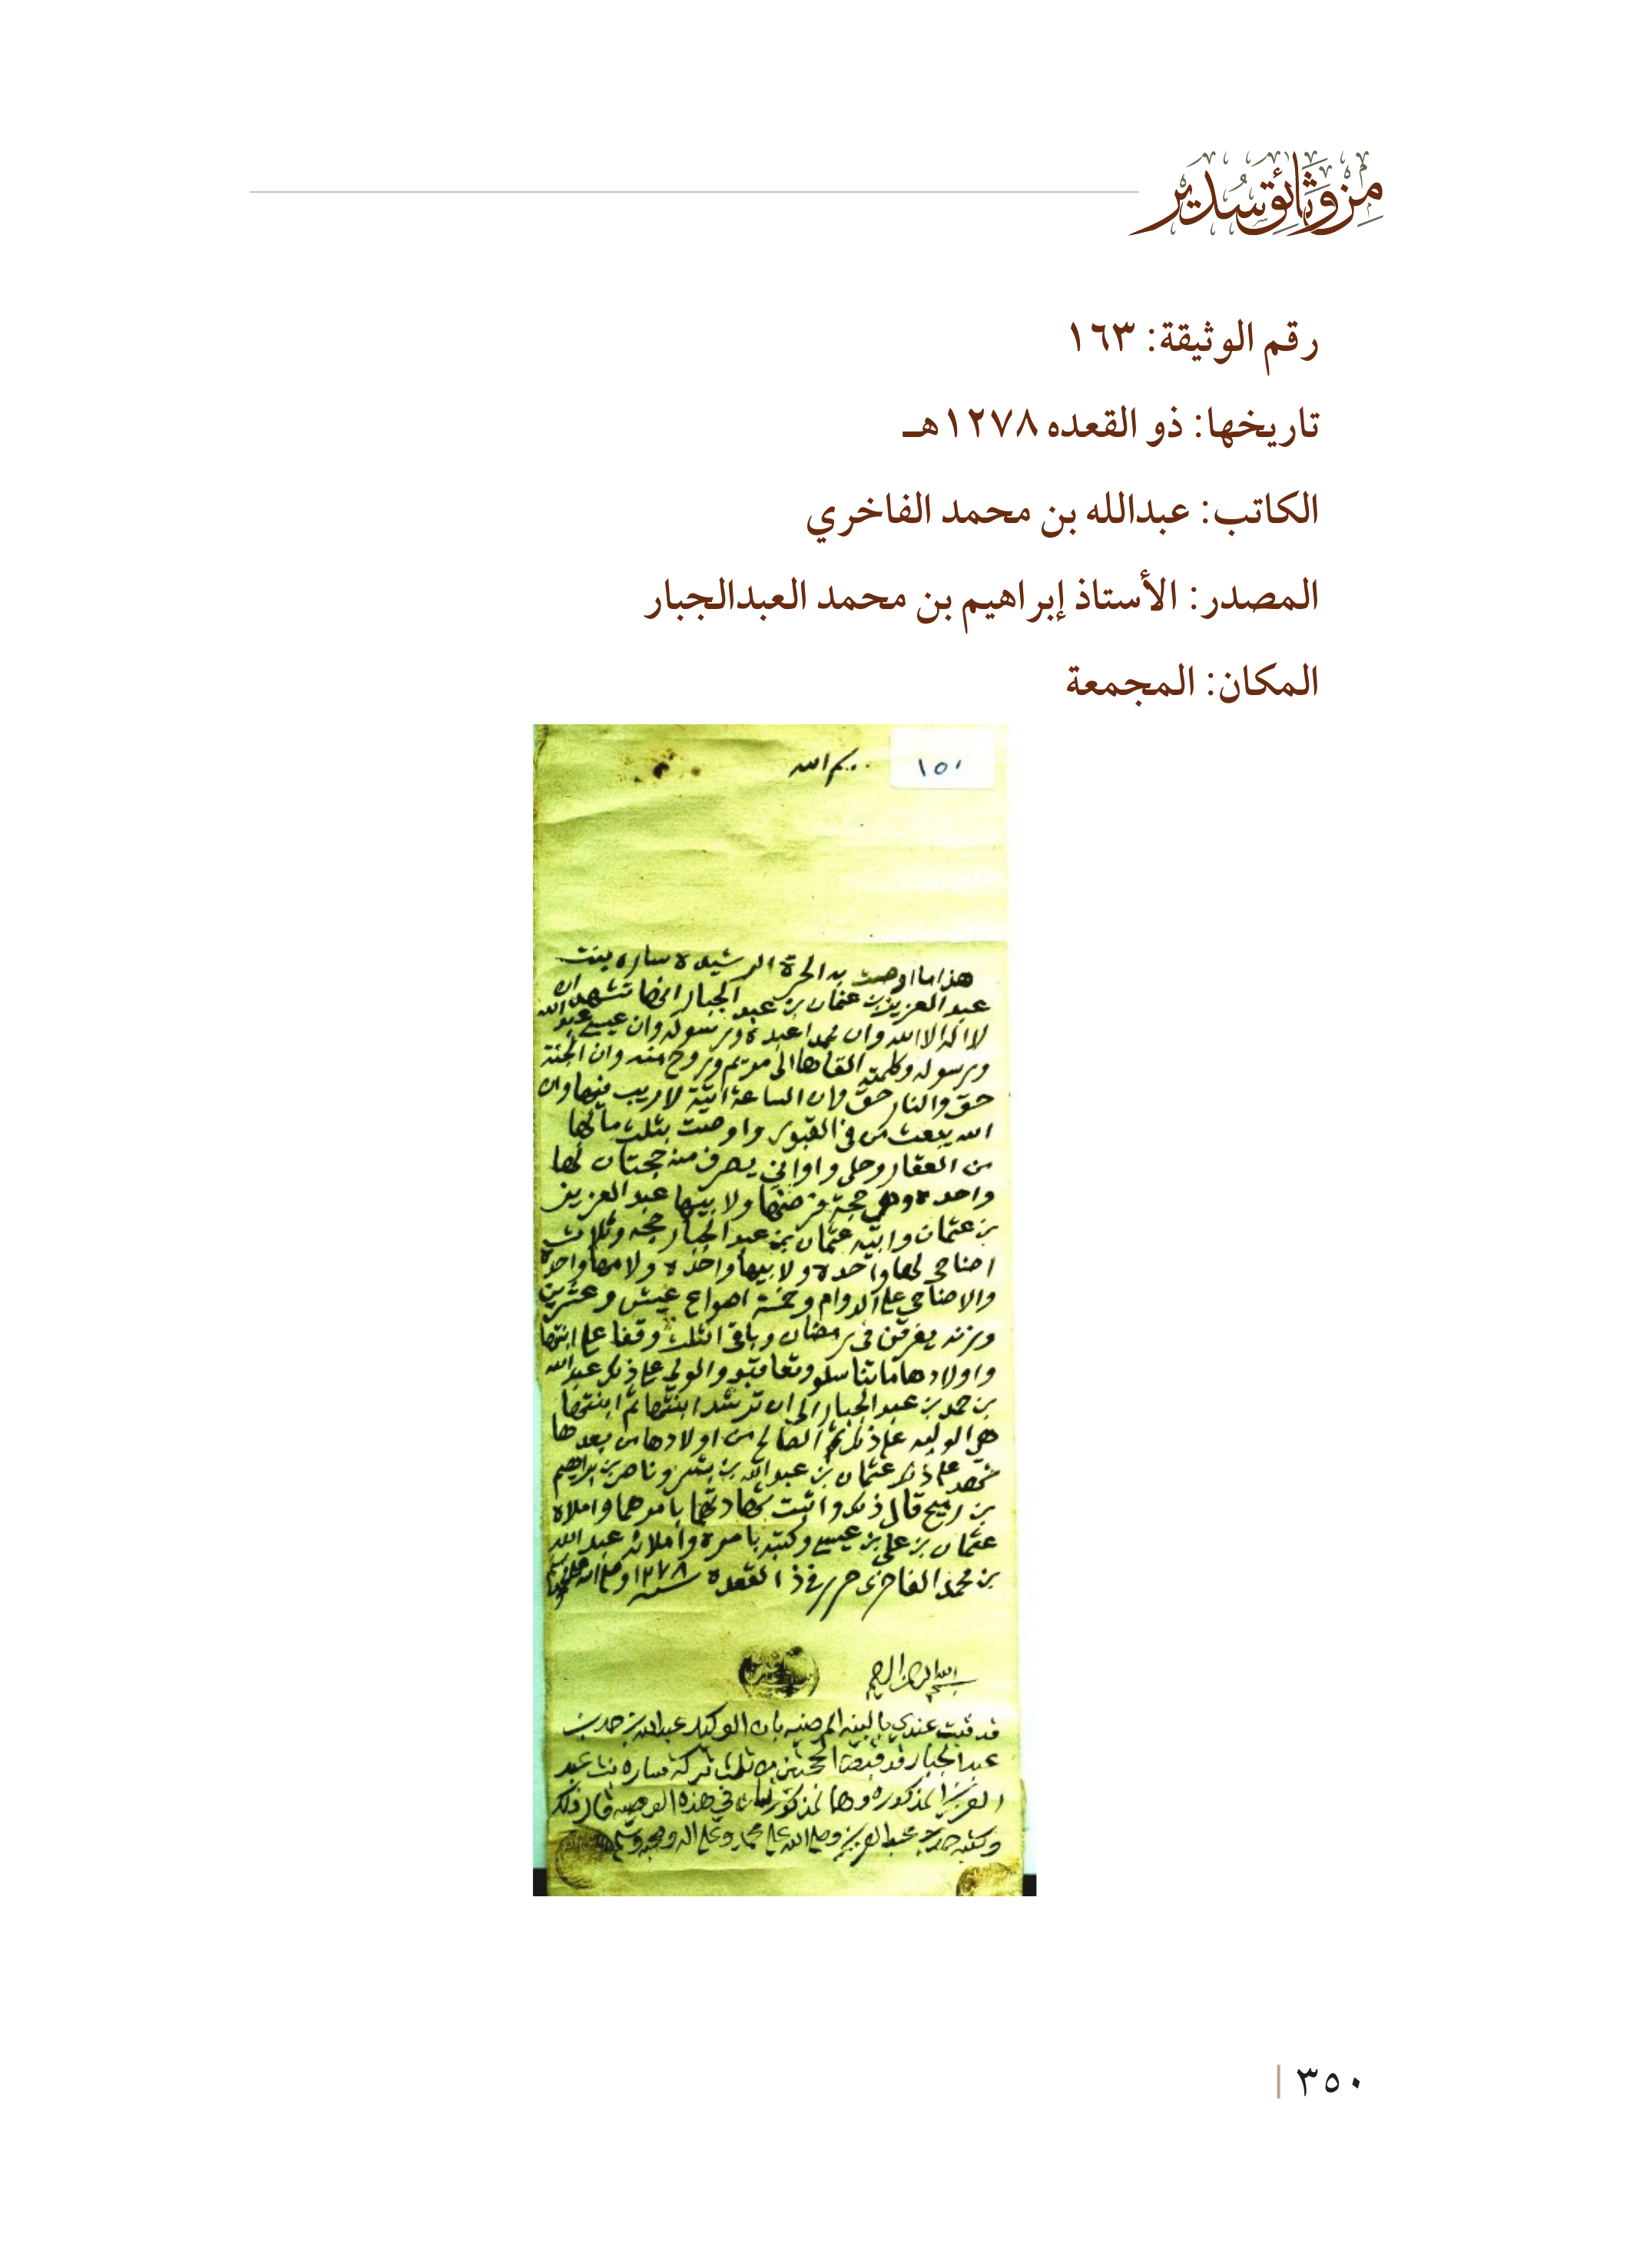 من وثائق سدير
رقم الوثيقة: ١٦٣
تاريخها: ذو القعده ١٢٧٨هـ
الكاتب: عبدالله بن محمد الفاخري
المصدر: الأستاذ إبراهيم بن محمد العبدالجبار
المكان: المجمعة
بسم الله
١٥١
هذا ما اوصت به الحرة الرشيده ساره بنت
عبد العزيز بن عثمان بن عبد الجبار انها تشهد ان
لا اله الا الله وان محمدا عبده ورسوله وان عيسى عبد الله
ورسوله وكلمته القاها الى مريم وروح منه وان الجنة
حق والنار حق وان الساعة اتية لا ريب فيها وان
الله يبعث من في القبور واوصت بثلث مالها
من العقار وحلي واواني يصرف منه حجتان لها
واحده وهي حجة فرضها ولابيها عبد العزيز
بن عثمان وابيه عثمان بن عبد الجبار حجه وثلاث
اضاحي لها واحده ولابيها واحده ولامها واحده
والاضاحي على الدوام وخمسة اصواع عيش وعشرين
وزنه يفرقن في رمضان وباقي الثلث وقفا على ابنتها
واولادها ما تناسلو وتعاقبو والولي على ذلك عبد الله
بن حمد بن عبد الجبار الى ان ترشد ابنتها ثم ابنتها
هي الوليه على ذلك ثم الصالح من اولادها من بعدها
شهد على ذلك عثمان بن عبد الله بن بشر وناصر بن ابراهيم
بن ربيح قال ذلك واثبت شهادتهما بامرهما واملاه
عثمان بن علي بن عيسى وكتبه بامره واملائه عبد الله
بن محمد الفاخري حرر في ذا القعده سنة ١٢٧٨ وصلى الله على محمد
بسم الله الرحمن الرحيم
قد ثبت عندي بالبينه المرضيه بان الوكيل عبد الله بن حمد بن
عبد الجبار قد قبض الحجتين من ثلث تركة ساره بنت عبد
العزيز المذكوره وهما المذكورتان في هذه الوصيه قال ذلك
وكتبه حمد بن عبد العزيز وصلى الله على محمد وعلى اله وصحبه وسلم
٣٥٠